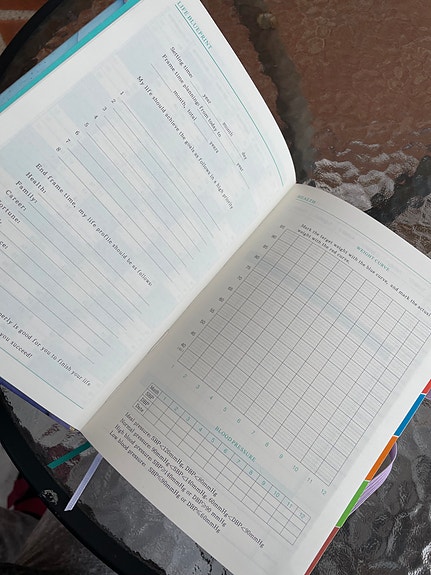 LIFE BLUEPRINT
Setting time: year month day
Frame time planning: From today to year
month, total years
My life should achieve the goals as follows in a big gravity
1
2
3
4
5
6
7
8
End frame time, my life profile should be as follows:
Health:
Family:
Career:
is good for you to finish your life
you succeed!
HEALTH
WEIGHT CURVE
Mark the target weight with the blue curve, and mark the actual
weight with the red curve.
1 2 3 4 5 6 7 8 9 10 11 12
BLOOD PRESSURE
Month 1 2 3 4 5 6 7 8 9 10 11 12
SBP
DBP
Date
Ideal pressure: SBP<120mmHg, DBP<80mmHg
High blood pressure:
Low blood pressure: SBP≤90mmHg or DBP≤60mmHg